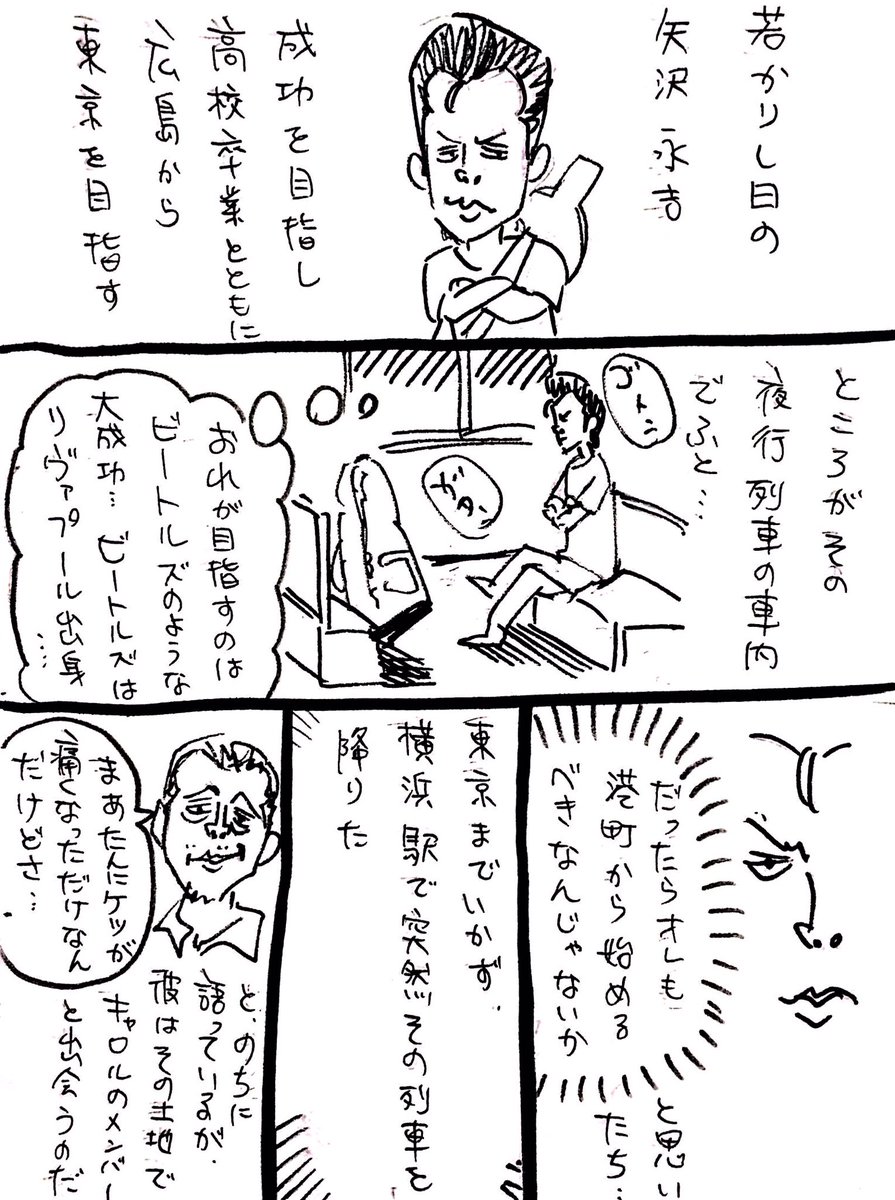 若かりし日の
矢沢永吉
成功を目指し
高校卒業とともに
広島から
東京を目指す
ところがその
夜行列車の車内
でふと…
ゴトン
ガタン
おれが目指すのは
ビートルズのような
大成功…ビートルズは
リヴァプール出身
……
だったらオレも
港町から始める
べきなんじゃないか
と思い
たち…
東京までいかず、
横浜駅で突然その列車を
降りた
まあたんにケツが
痛くなっただけなん
だけどさ…
と、のちに
語っているが、
彼はその土地で
キャロルのメンバー
と出会うのだ